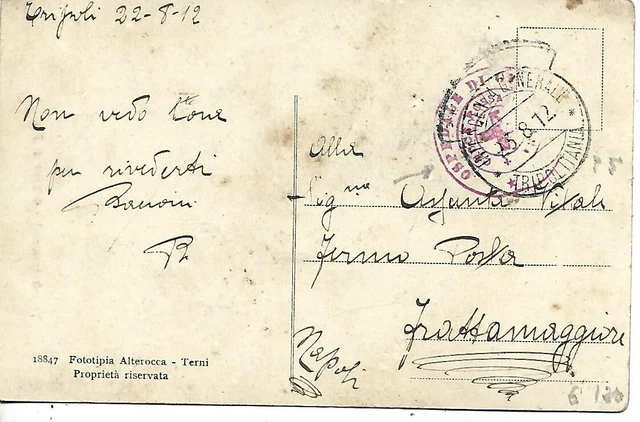 Tripoli 22-8-12
Non vedo l'ora
per rivederti
Bacioni
R
18847 Fototipia Alterocca - Terni
Proprietà riservata
OSPEDALE DI
INTENDENZA GENERALE
15 8 12
* TRIPOLITANIA *
Alla
Sig.na Assunta Vitale
Fermo Posta
Frattamaggiore
Napoli